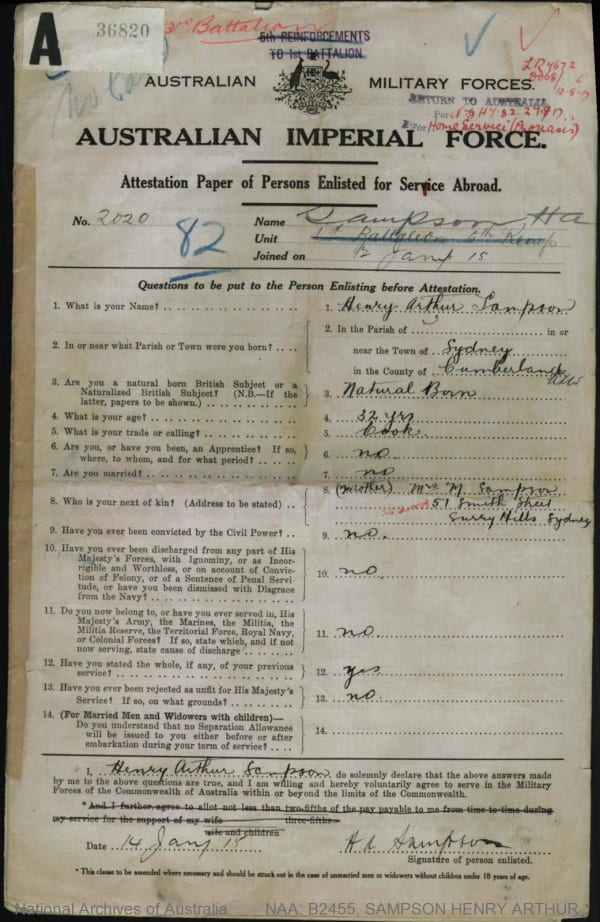 A
36820
3rd Battalion
5th REINFORCEMENTS
TO 1st BATTALION.
AUSTRALIAN MILITARY FORCES.
RETURN TO AUSTRALIA
Per
For Home Service (Psoriasis)
AUSTRALIAN IMPERIAL FORCE.
Attestation Paper of Persons Enlisted for Service Abroad.
No. 2020 Name Sampson HA
82
Unit 1st Battalion 5th Reinf
Joined on 12 Jany 15
Questions to be put to the Person Enlisting before Attestation.
1. What is your Name? 1. Henry Arthur Sampson
2. In or near what Parish or Town were you born? 2. In the Parish of in or
near the Town of Sydney
in the County of Cumberland
3. Are you a natural born British Subject or a
Naturalized British Subject? (N.B.—If the
latter, papers to be shown.) 3. Natural Born
4. What is your age? 4. 32 yrs
5. What is your trade or calling? 5. Cook
6. Are you, or have you been, an Apprentice? If so,
where, to whom, and for what period? 6. no
7. Are you married? 7. no
8. Who is your next of kin? (Address to be stated) 8. (mother) Mrs M Sampson
51 Smith Street
Surry Hills Sydney
9. Have you ever been convicted by the Civil Power? 9. no.
10. Have you ever been discharged from any part of His
Majesty's Forces, with Ignominy, or as Incor-
rigible and Worthless, or on account of Convic-
tion of Felony, or of a Sentence of Penal Servi-
tude, or have you been dismissed with Disgrace
from the Navy? 10. no
11. Do you now belong to, or have you ever served in, His
Majesty's Army, the Marines, the Militia, the
Militia Reserve, the Territorial Force, Royal Navy,
or Colonial Forces? If so, state which, and if not
now serving, state cause of discharge 11. no.
12. Have you stated the whole, if any, of your previous
service? 12. yes
13. Have you ever been rejected as unfit for His Majesty's
Service? If so, on what grounds? 13. no.
14. (For Married Men and Widowers with children)—
Do you understand that no Separation Allowance
will be issued to you either before or after
embarkation during your term of service? 14.
I, Henry Arthur Sampson do solemnly declare that the above answers made
by me to the above questions are true, and I am willing and hereby voluntarily agree to serve in the Military
Forces of the Commonwealth of Australia within or beyond the limits of the Commonwealth.
*And I further agree to allot not less than two-fifths of the pay payable to me from time to time during
my service for the support of my wife three-fifths
wife and children
Date 14 Jany 15 H A Sampson
Signature of person enlisted.
* This clause to be amended where necessary and should be struck out in the case of unmarried men or widowers without children under 18 years of age.
National Archives of Australia NAA: B2455, SAMPSON HENRY ARTHUR